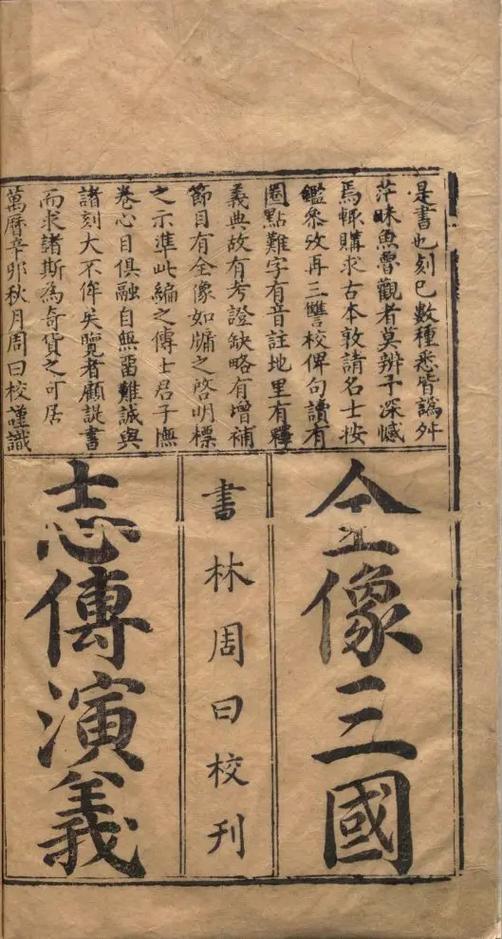 是書也刻已數種悉皆譌舛
茫昧魚魯觀者莫辨予深憾
焉輒購求古本敦請名士按
鑑參攷再三讐校俾句讀有
圈點難字有音註地里有釋
義典故有考證缺略有增補
節目有全像如牖之啓明標
之示準此編之傳士君子撫
卷心目俱融自無畱難誠與
諸刻大不侔矣覽者顧諟書
而求諸斯為奇貨之可居
萬曆辛卯秋月周曰校謹識
全像三國
書林周曰校刊
志傳演義